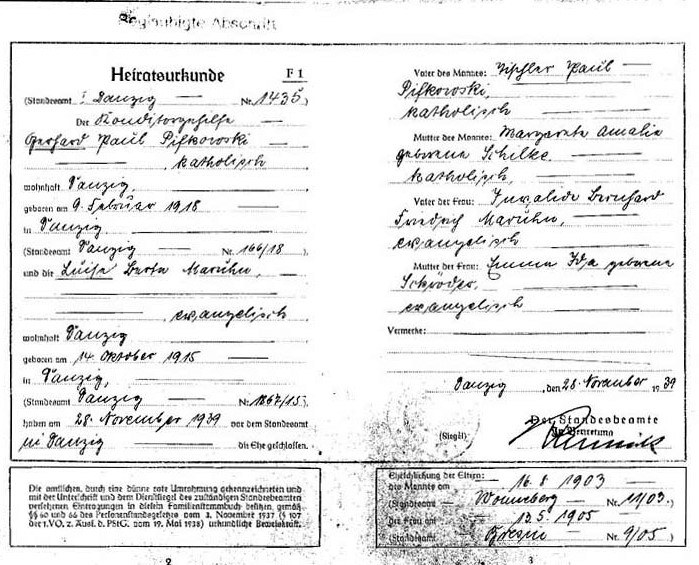 Beglaubigte Abschrift
Heiratsurkunde F 1
(Standesamt Danzig Nr. 1435)
Der Konditorgehilfe
Gerhard Paul Pifkowski
katholisch
wohnhaft Danzig,
geboren am 9. Februar 1918
in Danzig
(Standesamt Danzig Nr. 166/18),
und die Luise Berta Maruhn,
evangelisch
wohnhaft Danzig
geboren am 14. Oktober 1915
in Danzig,
(Standesamt Danzig Nr. 1867/15).
haben am 28. November 1939 vor dem Standesamt
in Danzig die Ehe geschlossen.
Vater des Mannes: Tischler Paul
Pifkowski,
katholisch
Mutter des Mannes: Margarete Amalie
geborene Schilke,
katholisch,
Vater der Frau: Invalide Bernhard
Friedrich Maruhn,
evangelisch
Mutter der Frau: Emma Ida geborene
Schröder,
evangelisch
Vermerke:
Danzig, den 28. November 1939
Der Standesbeamte
(Siegel) In Vertretung
Die amtlichen, durch eine dünne rote Umrahmung gekennzeichneten und
mit der Unterschrift und dem Dienstsiegel des zuständigen Standesbeamten
versehenen Eintragungen in diesem Familienstammbuch besitzen, gemäß
§§ 60 und 66 des Personenstandsgesetzes vom 3. November 1937 (§ 107
der 1. VO. z. Ausf. d. PStG. vom 19. Mai 1938) urkundliche Beweiskraft.
Eheschließung der Eltern:
des Mannes am 16. 8 1903
(Standesamt Wonneberg Nr. 11/03)
der Frau am 13. 5. 1905
(Standesamt Nr. 9/05)
2
3